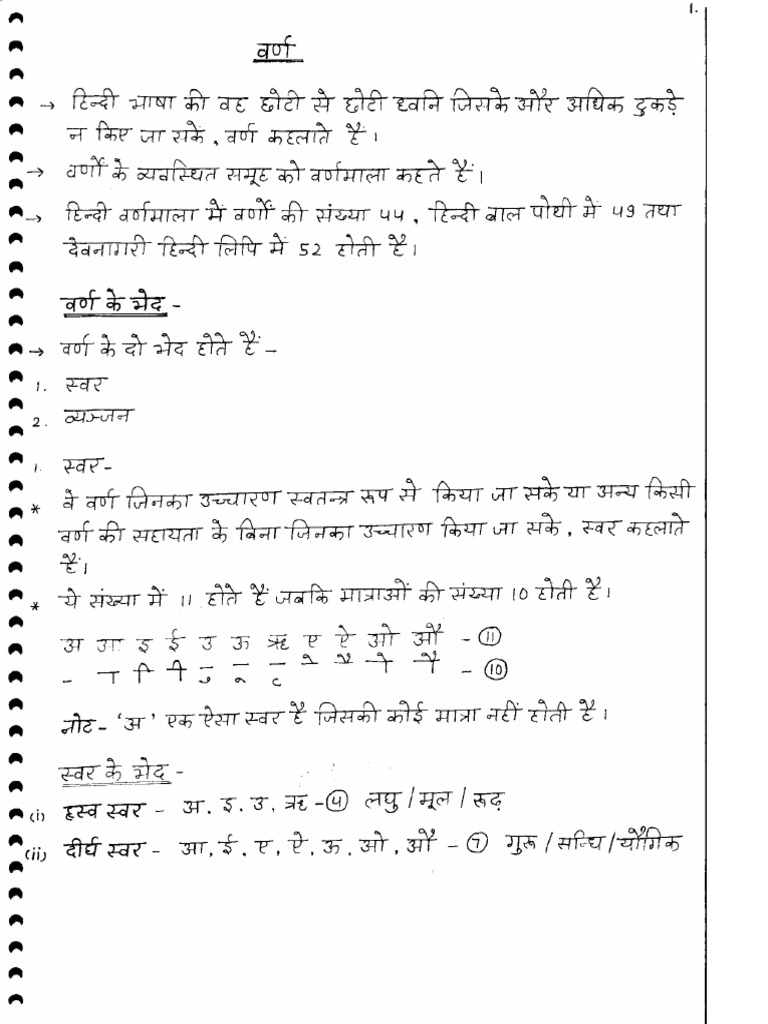 1.
वर्ण
→ हिन्दी भाषा की वह छोटी से छोटी ध्वनि जिसके और अधिक टुकड़े
न किए जा सकें, वर्ण कहलाते हैं।
→ वर्णों के व्यवस्थित समूह को वर्णमाला कहते हैं।
→ हिन्दी वर्णमाला में वर्णों की संख्या 44, हिन्दी बाल पोथी में 49 तथा
देवनागरी हिन्दी लिपि में 52 होती है।
वर्ण के भेद -
→ वर्ण के दो भेद होते हैं -
1. स्वर
2. व्यञ्जन
1. स्वर-
* वे वर्ण जिनका उच्चारण स्वतन्त्र रूप से किया जा सके या अन्य किसी
वर्ण की सहायता के बिना जिनका उच्चारण किया जा सके, स्वर कहलाते
हैं।
* ये संख्या में 11 होते हैं जबकि मात्राओं की संख्या 10 होती है।
अ आ इ ई उ ऊ ऋ ए ऐ ओ औ - 11
- ा ि ी ु ू ृ े ै ो ौ - 10
नोट- 'अ' एक ऐसा स्वर है जिसकी कोई मात्रा नहीं होती है।
स्वर के भेद -
(i) ह्रस्व स्वर - अ. इ. उ. ऋ - 4 लघु/मूल/रूढ़
(ii) दीर्घ स्वर - आ, ई. ए, ऐ. ऊ. ओ. औ - 7 गुरू/सन्धि/यौगिक